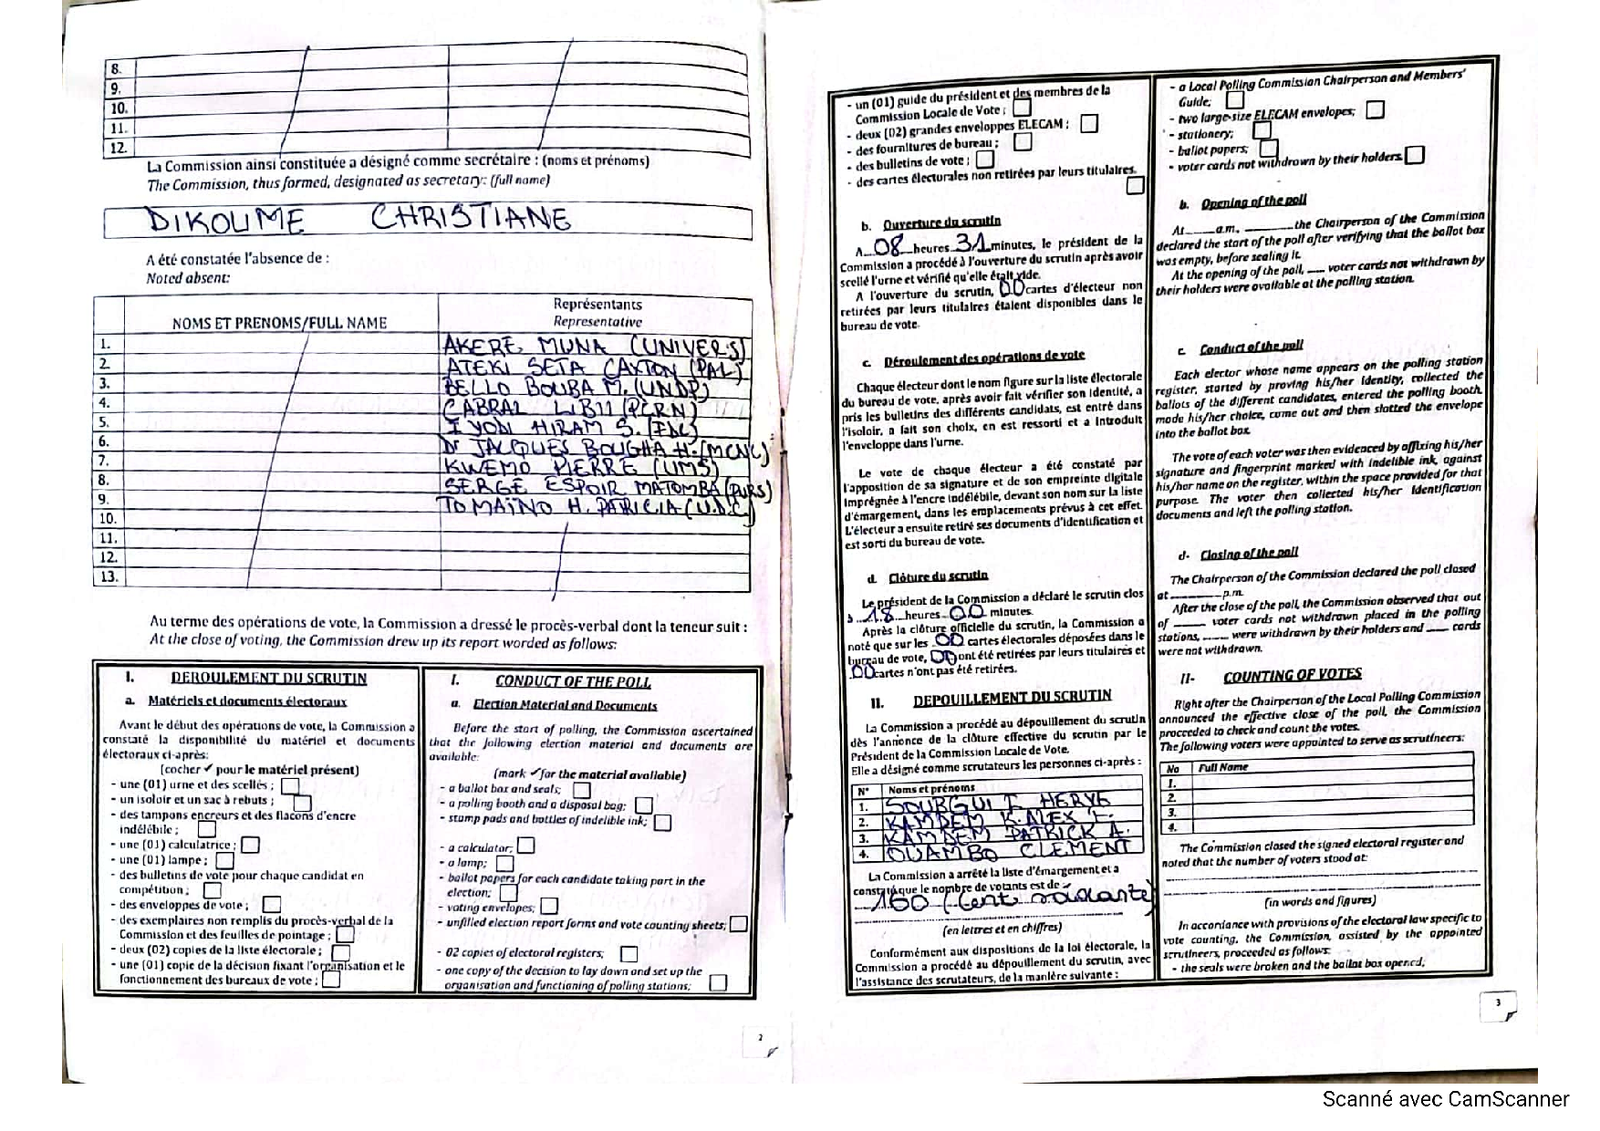 8.
9.
10.
11.
12.
La Commission ainsi constituée a désigné comme secrétaire : (noms et prénoms)
The Commission, thus formed, designated as secretary: (full name)
DIKOUME CHRISTIANE
A été constatée l'absence de :
Noted absent:
NOMS ET PRENOMS/FULL NAME
Représentants
Representative
1. AKERE MUNA (UNIVERS)
2. ATEKI SETA CAXTON (PAL)
3. BELLO BOUBA M. (UNDP)
4. CABRAL LIBII (PCRN)
5. IYODI HIRAM S. (FDC)
6. Dr JACQUES BOUGHA H. (MCNC)
7. KWEMO PIERRE (UMS)
8. SERGE ESPOIR MATOMBA (PURS)
9. TOMAINO H. PATRICIA (U.D.C)
10.
11.
12.
13.
Au terme des opérations de vote, la Commission a dressé le procès-verbal dont la teneur suit :
At the close of voting, the Commission drew up its report worded as follows:
I. DEROULEMENT DU SCRUTIN
a. Matériels et documents électoraux
Avant le début des opérations de vote, la Commission a
constaté la disponibilité du matériel et documents
électoraux ci-après:
(cocher ✓ pour le matériel présent)
- une (01) urne et des scellés ;
- un isoloir et un sac à rebuts ;
- des tampons encreurs et des flacons d'encre
indélébile ;
- une (01) calculatrice ;
- une (01) lampe ;
- des bulletins de vote pour chaque candidat en
compétition ;
- des enveloppes de vote ;
- des exemplaires non remplis du procès-verbal de la
Commission et des feuilles de pointage ;
- deux (02) copies de la liste électorale ;
- une (01) copie de la décision fixant l'organisation et le
fonctionnement des bureaux de vote ;
I. CONDUCT OF THE POLL
a. Election Material and Documents
Before the start of polling, the Commission ascertained
that the following election material and documents are
available:
(mark ✓ for the material available)
- a ballot box and seals;
- a polling booth and a disposal bag;
- stamp pads and bottles of indelible ink;
- a calculator;
- a lamp;
- ballot papers for each candidate taking part in the
election;
- voting envelopes;
- unfilled election report forms and vote counting sheets;
- 02 copies of electoral registers;
- one copy of the decision to lay down and set up the
organisation and functioning of polling stations;
2
- un (01) guide du président et des membres de la
Commission Locale de Vote ;
- deux (02) grandes enveloppes ELECAM ;
- des fournitures de bureau ;
- des bulletins de vote ;
- des cartes électorales non retirées par leurs titulaires.
b. Ouverture du scrutin
A 08 heures 31 minutes, le président de la
Commission a procédé à l'ouverture du scrutin après avoir
scellé l'urne et vérifié qu'elle était vide.
A l'ouverture du scrutin, 00 cartes d'électeur non
retirées par leurs titulaires étaient disponibles dans le
bureau de vote.
c. Déroulement des opérations de vote
Chaque électeur dont le nom figure sur la liste électorale
du bureau de vote, après avoir fait vérifier son identité, a
pris les bulletins des différents candidats, est entré dans
l'isoloir, a fait son choix, en est ressorti et a introduit
l'enveloppe dans l'urne.
Le vote de chaque électeur a été constaté par
l'apposition de sa signature et de son empreinte digitale
imprégnée à l'encre indélébile, devant son nom sur la liste
d'émargement, dans les emplacements prévus à cet effet.
L'électeur a ensuite retiré ses documents d'identification et
est sorti du bureau de vote.
d. Clôture du scrutin
Le président de la Commission a déclaré le scrutin clos
à 18 heures 00 minutes.
Après la clôture officielle du scrutin, la Commission a
noté que sur les 00 cartes électorales déposées dans le
bureau de vote, 00 ont été retirées par leurs titulaires et
00 cartes n'ont pas été retirées.
II. DEPOUILLEMENT DU SCRUTIN
La Commission a procédé au dépouillement du scrutin
dès l'annonce de la clôture effective du scrutin par le
Président de la Commission Locale de Vote.
Elle a désigné comme scrutateurs les personnes ci-après :
N° Noms et prénoms
1. SOURGUI T. HERVE
2. KAMDEM K. ALEX F.
3. KAMDEM PATRICK A.
4. OUAMBO CLEMENT
La Commission a arrêté la liste d'émargement et a
constaté que le nombre de votants est de
160 (Cent soixante)
(en lettres et en chiffres)
Conformément aux dispositions de la loi électorale, la
Commission a procédé au dépouillement du scrutin, avec
l'assistance des scrutateurs, de la manière suivante :
- a Local Polling Commission Chairperson and Members'
Guide;
- two large-size ELECAM envelopes;
- stationery;
- ballot papers;
- voter cards not withdrawn by their holders.
b. Opening of the poll
At____a.m, ________the Chairperson of the Commission
declared the start of the poll after verifying that the ballot box
was empty, before sealing it.
At the opening of the poll, ___ voter cards not withdrawn by
their holders were available at the polling station.
c. Conduct of the poll
Each elector whose name appears on the polling station
register, started by proving his/her identity, collected the
ballots of the different candidates, entered the polling booth,
made his/her choice, came out and then slotted the envelope
into the ballot box.
The vote of each voter was then evidenced by affixing his/her
signature and fingerprint marked with indelible ink, against
his/her name on the register, within the space provided for that
purpose. The voter then collected his/her identification
documents and left the polling station.
d- Closing of the poll
The Chairperson of the Commission declared the poll closed
at________p.m.
After the close of the poll, the Commission observed that out
of ____ voter cards not withdrawn placed in the polling
stations, ____ were withdrawn by their holders and ____ cards
were not withdrawn.
II- COUNTING OF VOTES
Right after the Chairperson of the Local Polling Commission
announced the effective close of the poll, the Commission
proceeded to check and count the votes.
The following voters were appointed to serve as scrutineers:
No Full Name
1.
2.
3.
4.
The Commission closed the signed electoral register and
noted that the number of voters stood at:
(in words and figures)
In accordance with provisions of the electoral law specific to
vote counting, the Commission, assisted by the appointed
scrutineers, proceeded as follows:
- the seals were broken and the ballot box opened;
3
Scanné avec CamScanner